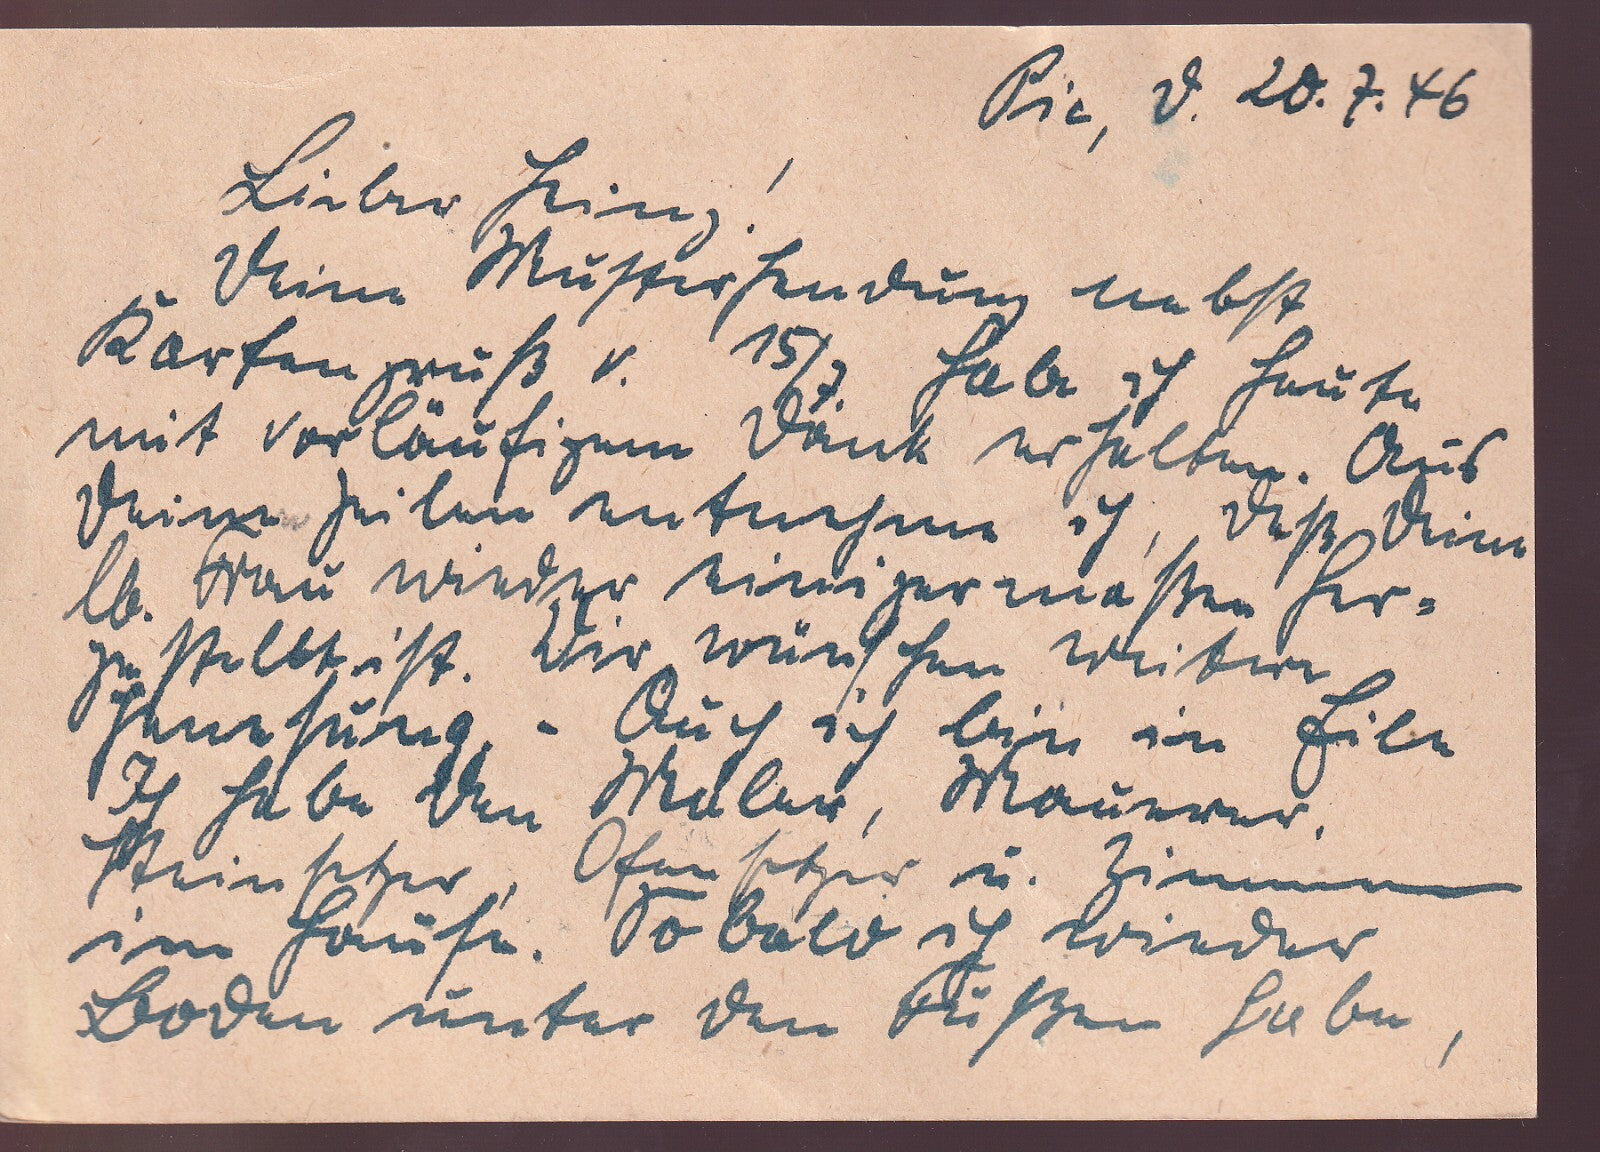 Pie, d. 20.7.46
Lieber Heinz!
Deine Mustersendung nebst
Kartengruß v. 15/7. habe ich heute
mit vorläufigem Dank erhalten. Aus
Deinen Zeilen entnehme ich, daß Deine
lb. Frau wieder einigermaßen her-
gestellt ist. Wir wünschen weitere
Genesung. - Auch ich bin in Eile
Ich habe den Maler, Maurer,
Steinsetzer, Ofensetzer u. Zimmerm
im Hause. Sobald ich wieder
Boden unter den Füßen habe,